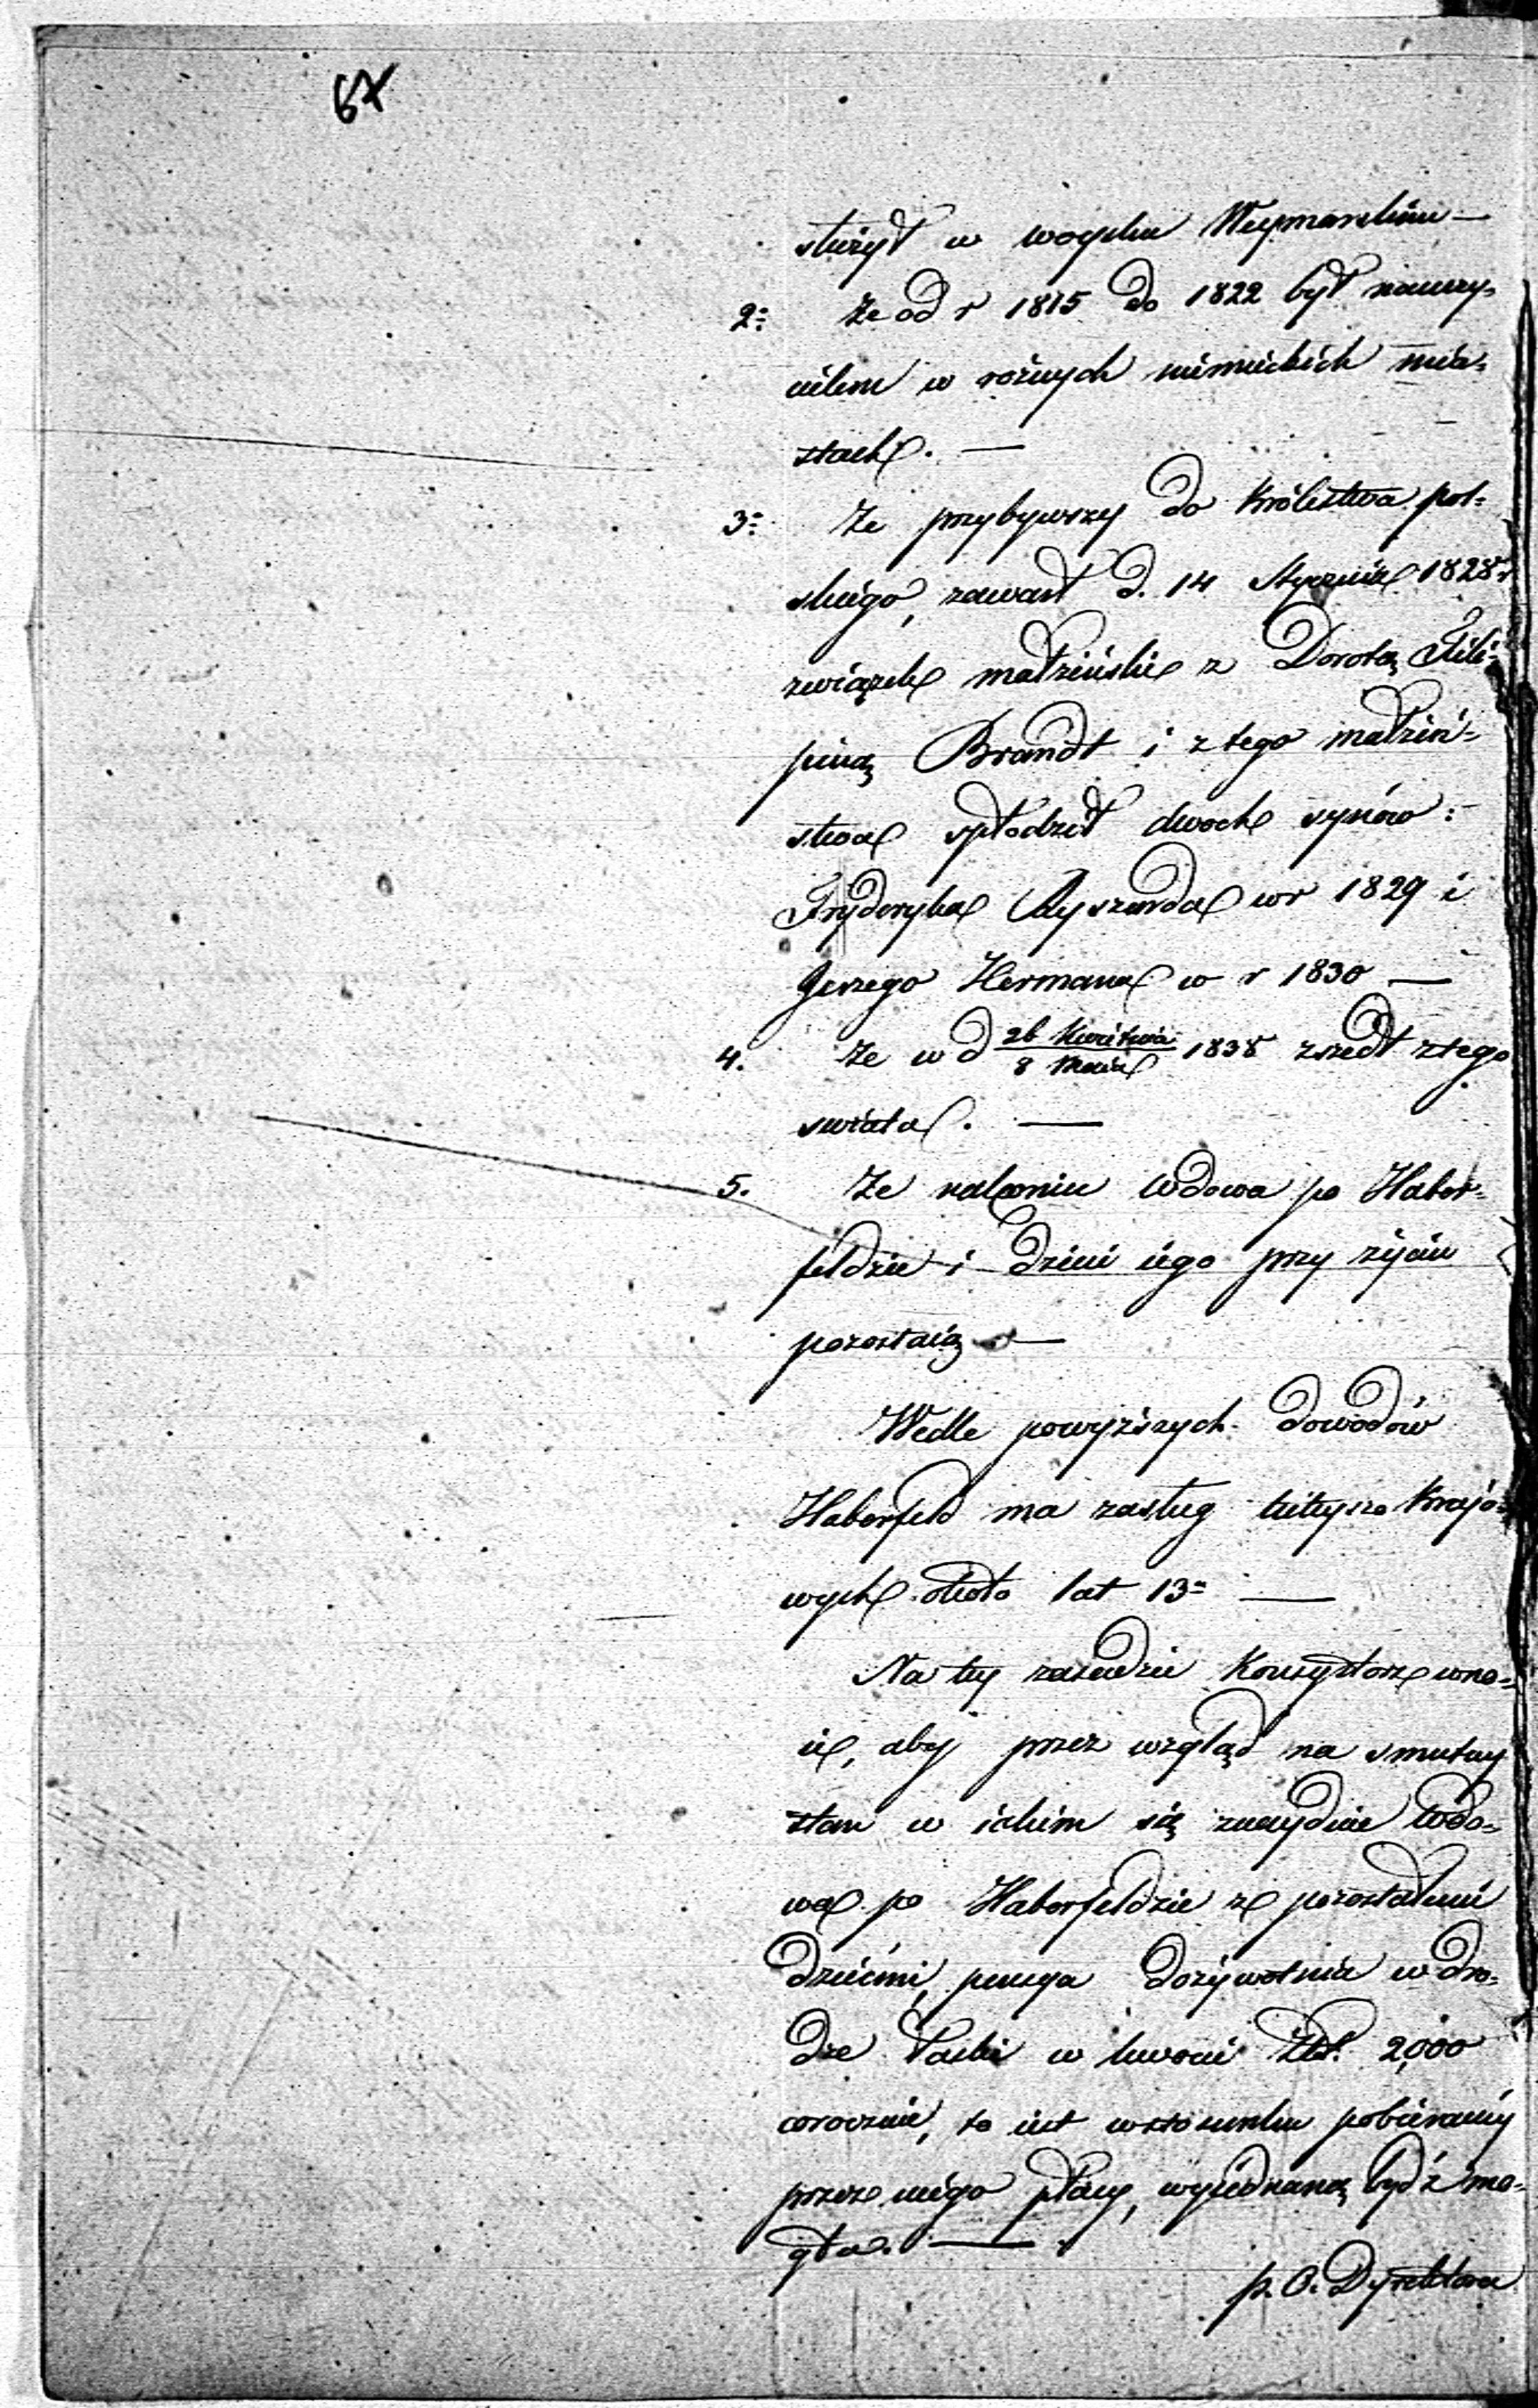 67
służył w woysku Weymarskim —
2: że od r 1815 do 1822 był nauczy-
cielem w rożnych niemieckich mia-
stach. —
3: że przybywszy do Królestwa pol-
skiego, zawarł d. 14 Stycznia 1828 r
związek małżeński z Dorotą Fili-
piną Brandt i z tego małżeń-
stwa spłodził dwoch synów:
Fryderyka Ryszarda w r 1829 i
Jerzego Hermana w r 1830 —
4. że w d 26 Kwietnia / 8 Maia 1838 zszedł z tego
swiata. —
5. że nakoniec wdowa po Haber-
feldzie i dzieci iego przy życiu
pozostaią —
Wedle powyższych dowodów
Haberfeld ma zasług tuteyszo krajo-
wych około lat 13: —
Na tey zasadzie Konsystorz wno-
si, aby przez wzgląd na smutny
stan w iakim się znayduie wdo-
wa po Haberfeldzie z pozostałemi
dziećmi, pensya dożywotnia w dro-
dze łaski w kwocie Złot. 2,000
corocznie, to iest w stosunku pobieraney
przez niego płacy, wyiednaną bydź mo-
gła. —
p. O. Dyrektora